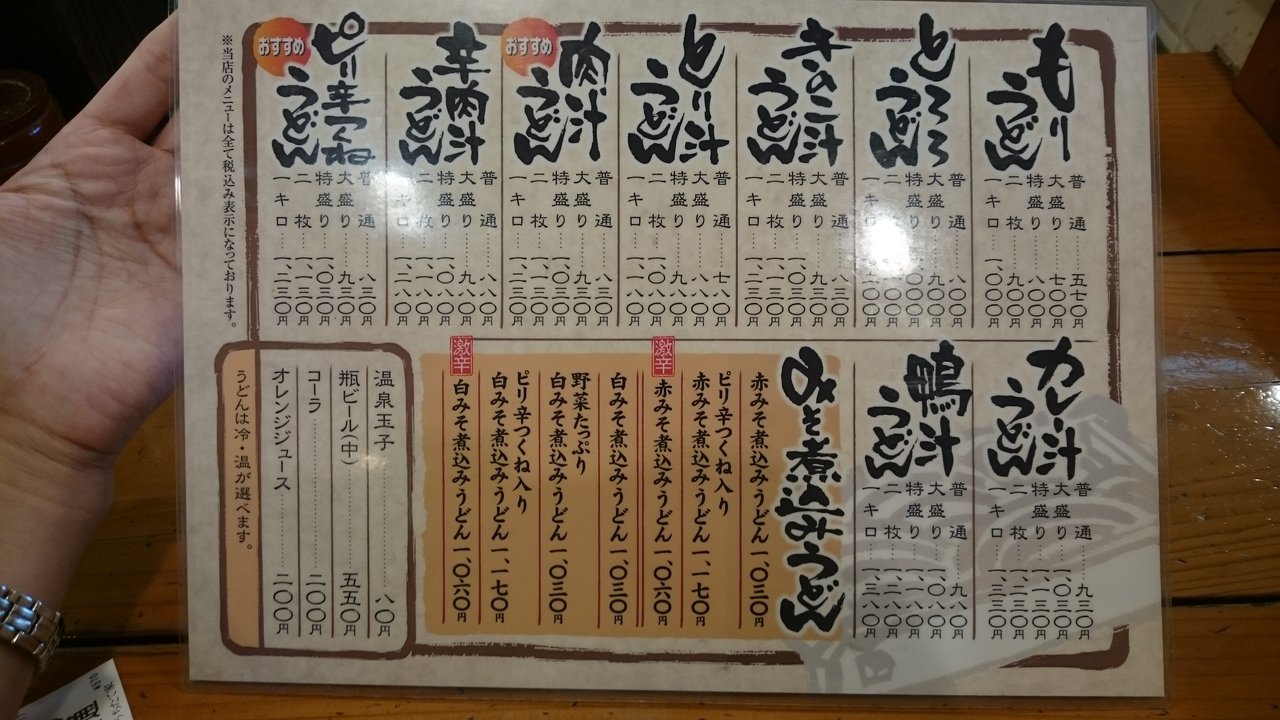 もりうどん
普通……五七〇円
大盛り……七〇〇円
特盛り……八〇〇円
二枚……九〇〇円
一キロ……一、〇〇〇円
とろろうどん
普通……八〇〇円
大盛り……九〇〇円
特盛り
二枚
一キロ
きのこ汁うどん
普通……八三〇円
大盛り……九三〇円
特盛り……一、〇三〇円
二枚……一、一三〇円
一キロ……一、二三〇円
とり汁うどん
普通……七八〇円
大盛り……八八〇円
特盛り……九八〇円
二枚……一、〇八〇円
一キロ……一、一八〇円
おすすめ
肉汁うどん
普通……八三〇円
大盛り……九三〇円
特盛り……一、〇三〇円
二枚……一、一三〇円
一キロ……一、二三〇円
辛肉汁うどん
普通……八八〇円
大盛り……九八〇円
特盛り……一、〇八〇円
二枚……一、一八〇円
一キロ……一、二八〇円
おすすめ
ピリ辛つくねうどん
普通……八三〇円
大盛り……九三〇円
特盛り……一、〇三〇円
二枚……一、一三〇円
一キロ……一、二三〇円
※当店のメニューは全て税込み表示になっております。
カレー汁うどん
普通……九三〇円
大盛り……一、〇三〇円
特盛り……一、一三〇円
二枚……一、二三〇円
一キロ……一、三三〇円
鴨汁うどん
普通……九八〇円
大盛り……一、〇八〇円
特盛り……一、一八〇円
二枚……一、二八〇円
一キロ……一、三八〇円
みそ煮込みうどん
赤みそ煮込みうどん 一、〇三〇円
ピリ辛つくね入り
赤みそ煮込みうどん 一、一七〇円
激辛
赤みそ煮込みうどん 一、〇六〇円
白みそ煮込みうどん 一、〇三〇円
野菜たっぷり
白みそ煮込みうどん 一、〇三〇円
ピリ辛つくね入り
白みそ煮込みうどん 一、一七〇円
激辛
白みそ煮込みうどん 一、〇六〇円
温泉玉子……八〇円
瓶ビール(中)……五五〇円
コーラ……二〇〇円
オレンジジュース……二〇〇円
うどんは冷・温が選べます。